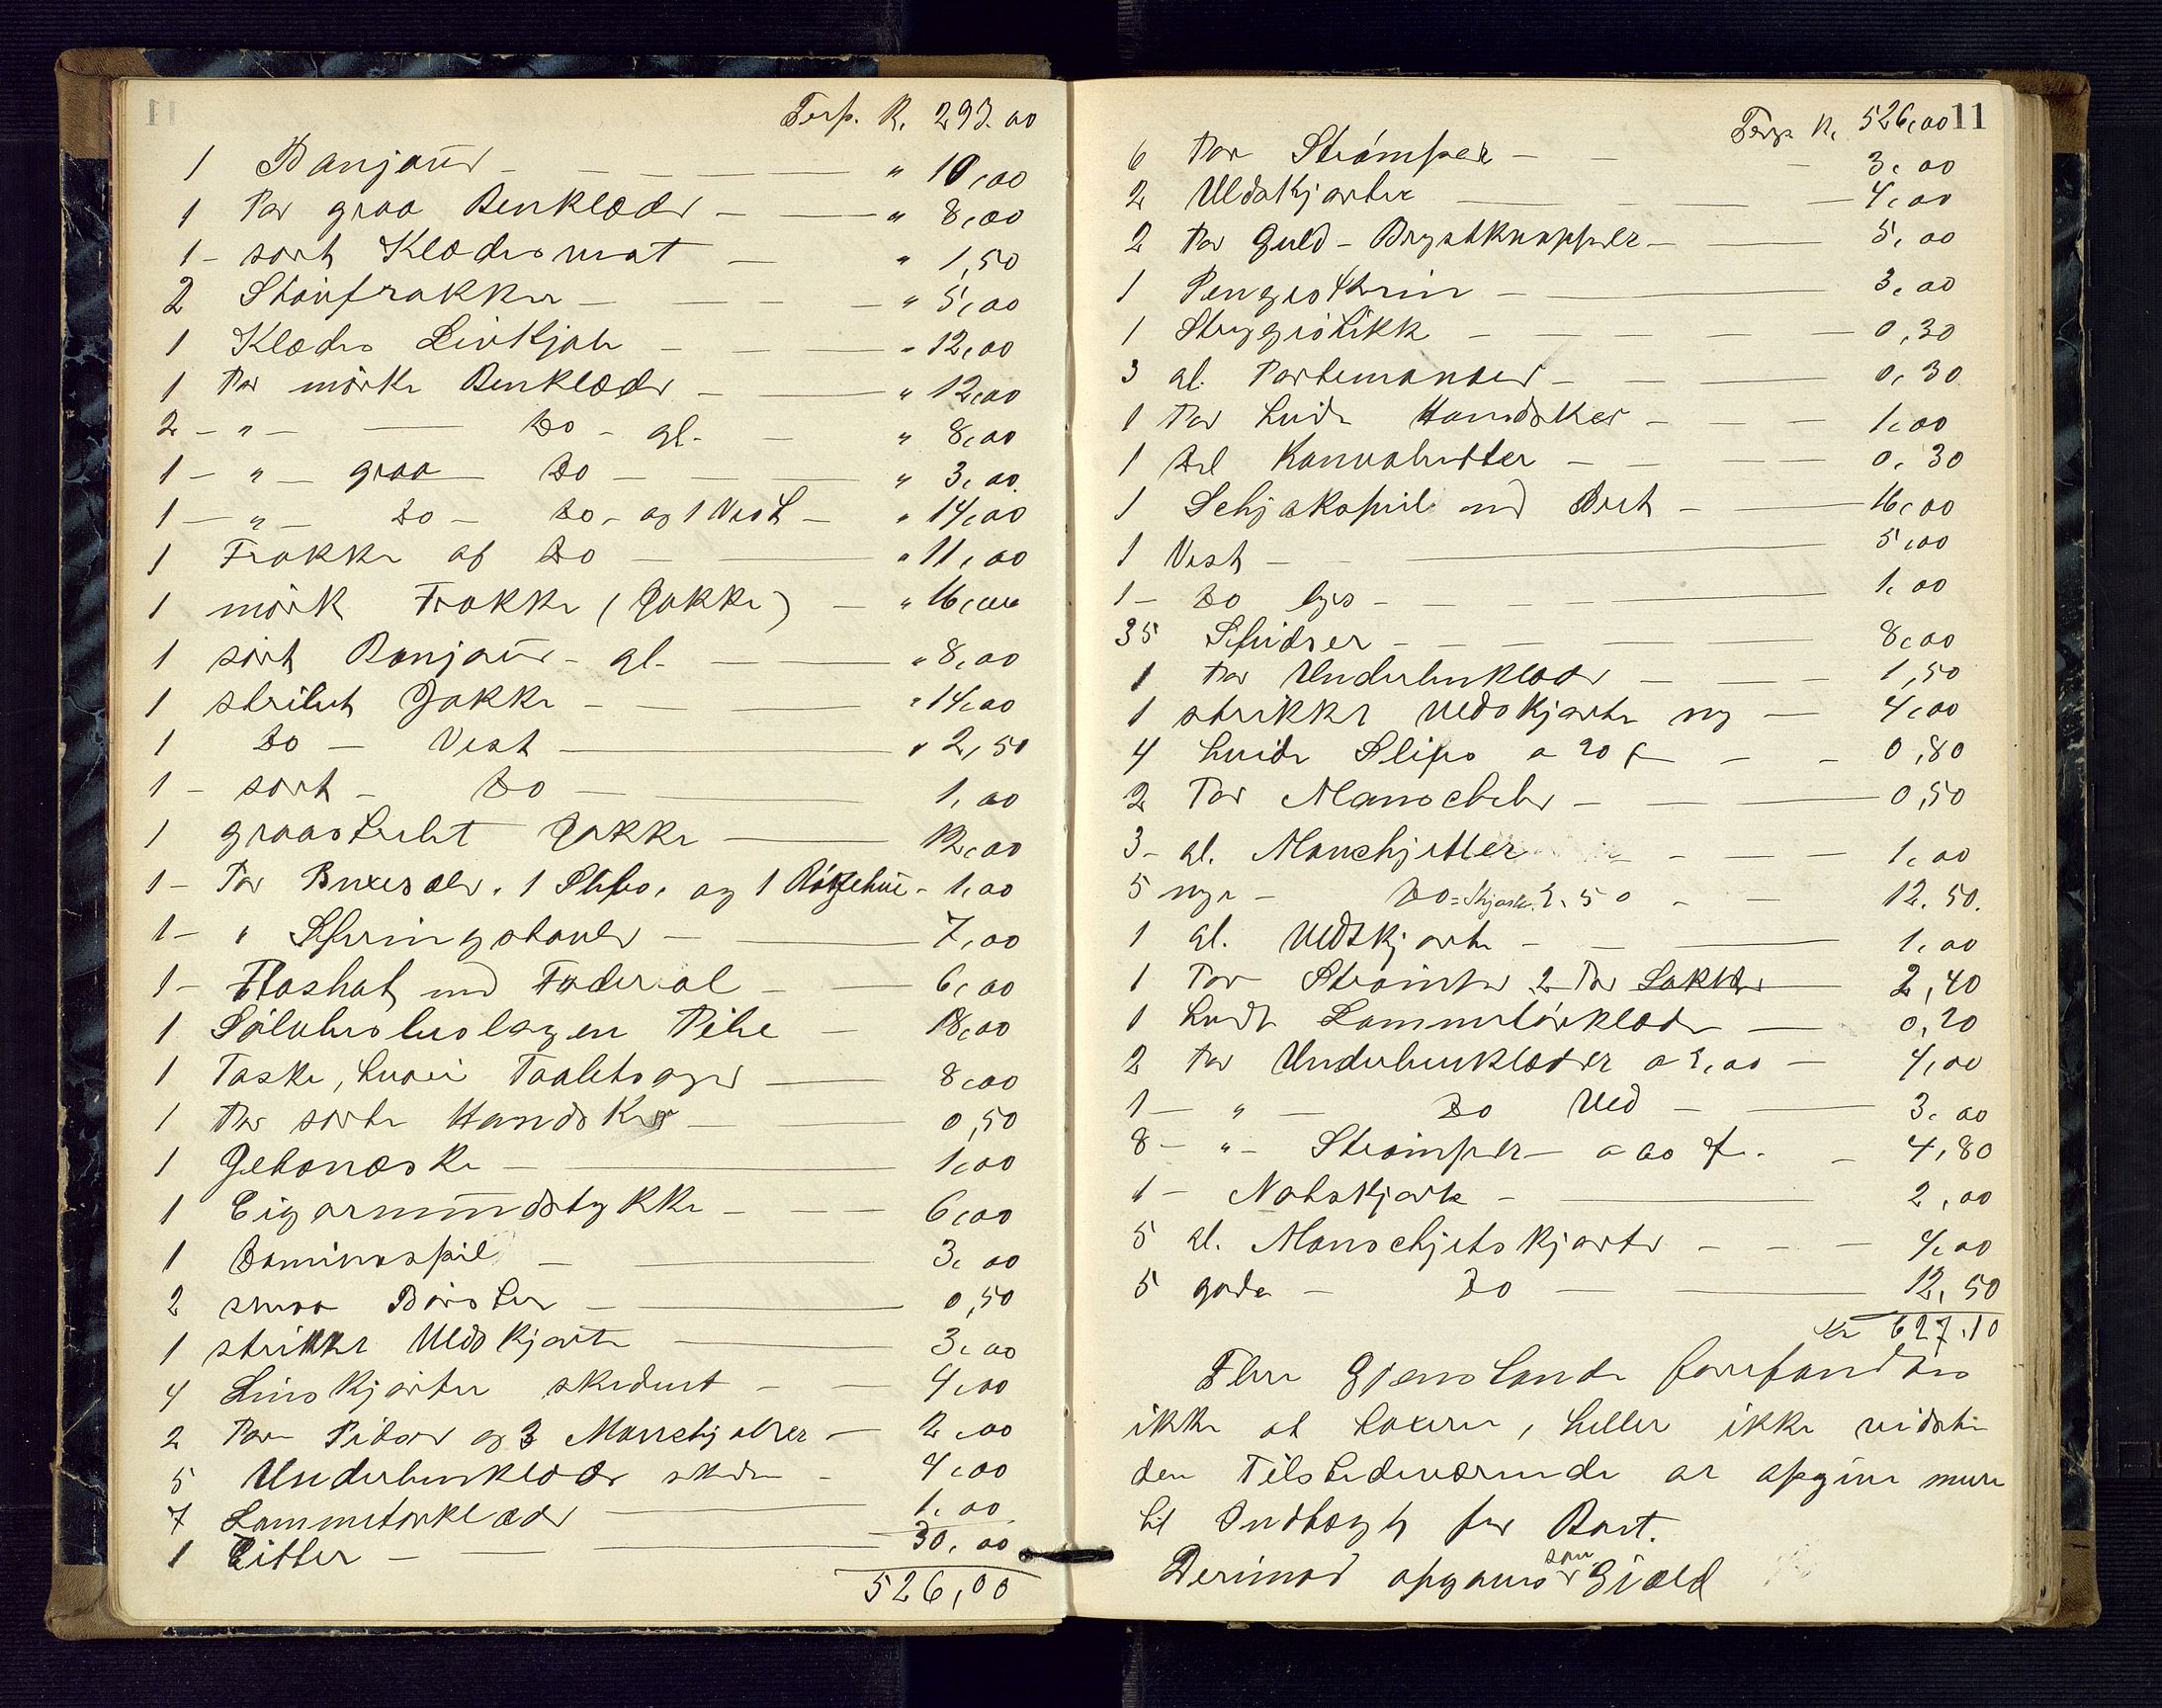 Trsp. K. 293.00
1 Banjour " 10,00
1 Par graa Benklæder " 8,00
1 sort Klædesvest " 1,50
2 Støvfrakker " 5,00
1 Klædes Livkjole " 12,00
1 Par mörke Benklæder " 12,00
2 - " - Do - gl. - " 8,00
1 - " - graa Do - " 3,00
1 - " - Do - Do - og 1 Vest - " 14,00
1 Frakke af Do " 11,00
1 mörk Frakke (Jakke) - " 16,00
1 sort Bonjour - gl. " 8,00
1 stribet Jakke - " 14,00
1 Do - Vest " 2,50
1 - sort - Do 1,00
1 graastribet Jakke 12,00
1 - Par Buxesæler, 1 Slips, og 1 - 1,00
1 - " Springstøvler - 7,00
1 - Floshat med Foderal - 6,00
1 Sølvbeslagen Pibe - 18,00
1 Taske, Toiletsager 8,00
1 Par sorte Handsker 0,50
1 1,00
1 Cigarmundstykke - 6,00
1 Dominospil - 3,00
2 smaa Börster - 0,50
1 strikke Uldskjorte 3,00
4 Linskjorter skident - 4,00
2 Par og 3 Manchjetter - 2,00
5 Underbenklæder skidne - 4,00
7 Lommetörklæder 1,00
1 Citter - 30,00
526,00
11
Trsp K. 526,00
6 Par Strömper - 3,00
2 Uldskjorter 4,00
2 Par Guld-Brystknapper - 5,00
1 Pengeskrin - 3,00
1 0,30
3 gl. Portemonæer - 0,30
1 Par hvide Handsker - 1,00
1 Del Konvolutter - 0,30
1 Schjakspil med Bret - 16,00
1 Vest - 5,00
1 - Do lys - 1,00
35 8,00
1 Par Underbenklæder - 1,50
1 strikke Uldskjorte ny - 4,00
4 hvide Slips a 20 - 0,80
2 Par Manschetter - 0,50
3 - gl. Manchjetter - 1,00
5 nye - Do = Skjorter 2.50 - 12.50.
1 gl. Uldskjorte - 1,00
1 Par Strömper 2 Par Sokker 2,40
1 hvidt Lommetörklæde 0,20
2 Par Underbenklæder a 2,00 - 4,00
1 - " - Do Uld - 3,00
8 - " - Strömper - a 60 - 4,80
1 - Natskjorte - 2,00
5 gl. Manschjetskjorter - 4,00
5 gode - Do 12,50
Kr 627.10
Flere Gjenstande forefandtes
ikke at taxere, heller ikke vidste
den Tilstedeværende at opgive mere
til Indtægt for Boet.
Derimod opgaves som Gjæld